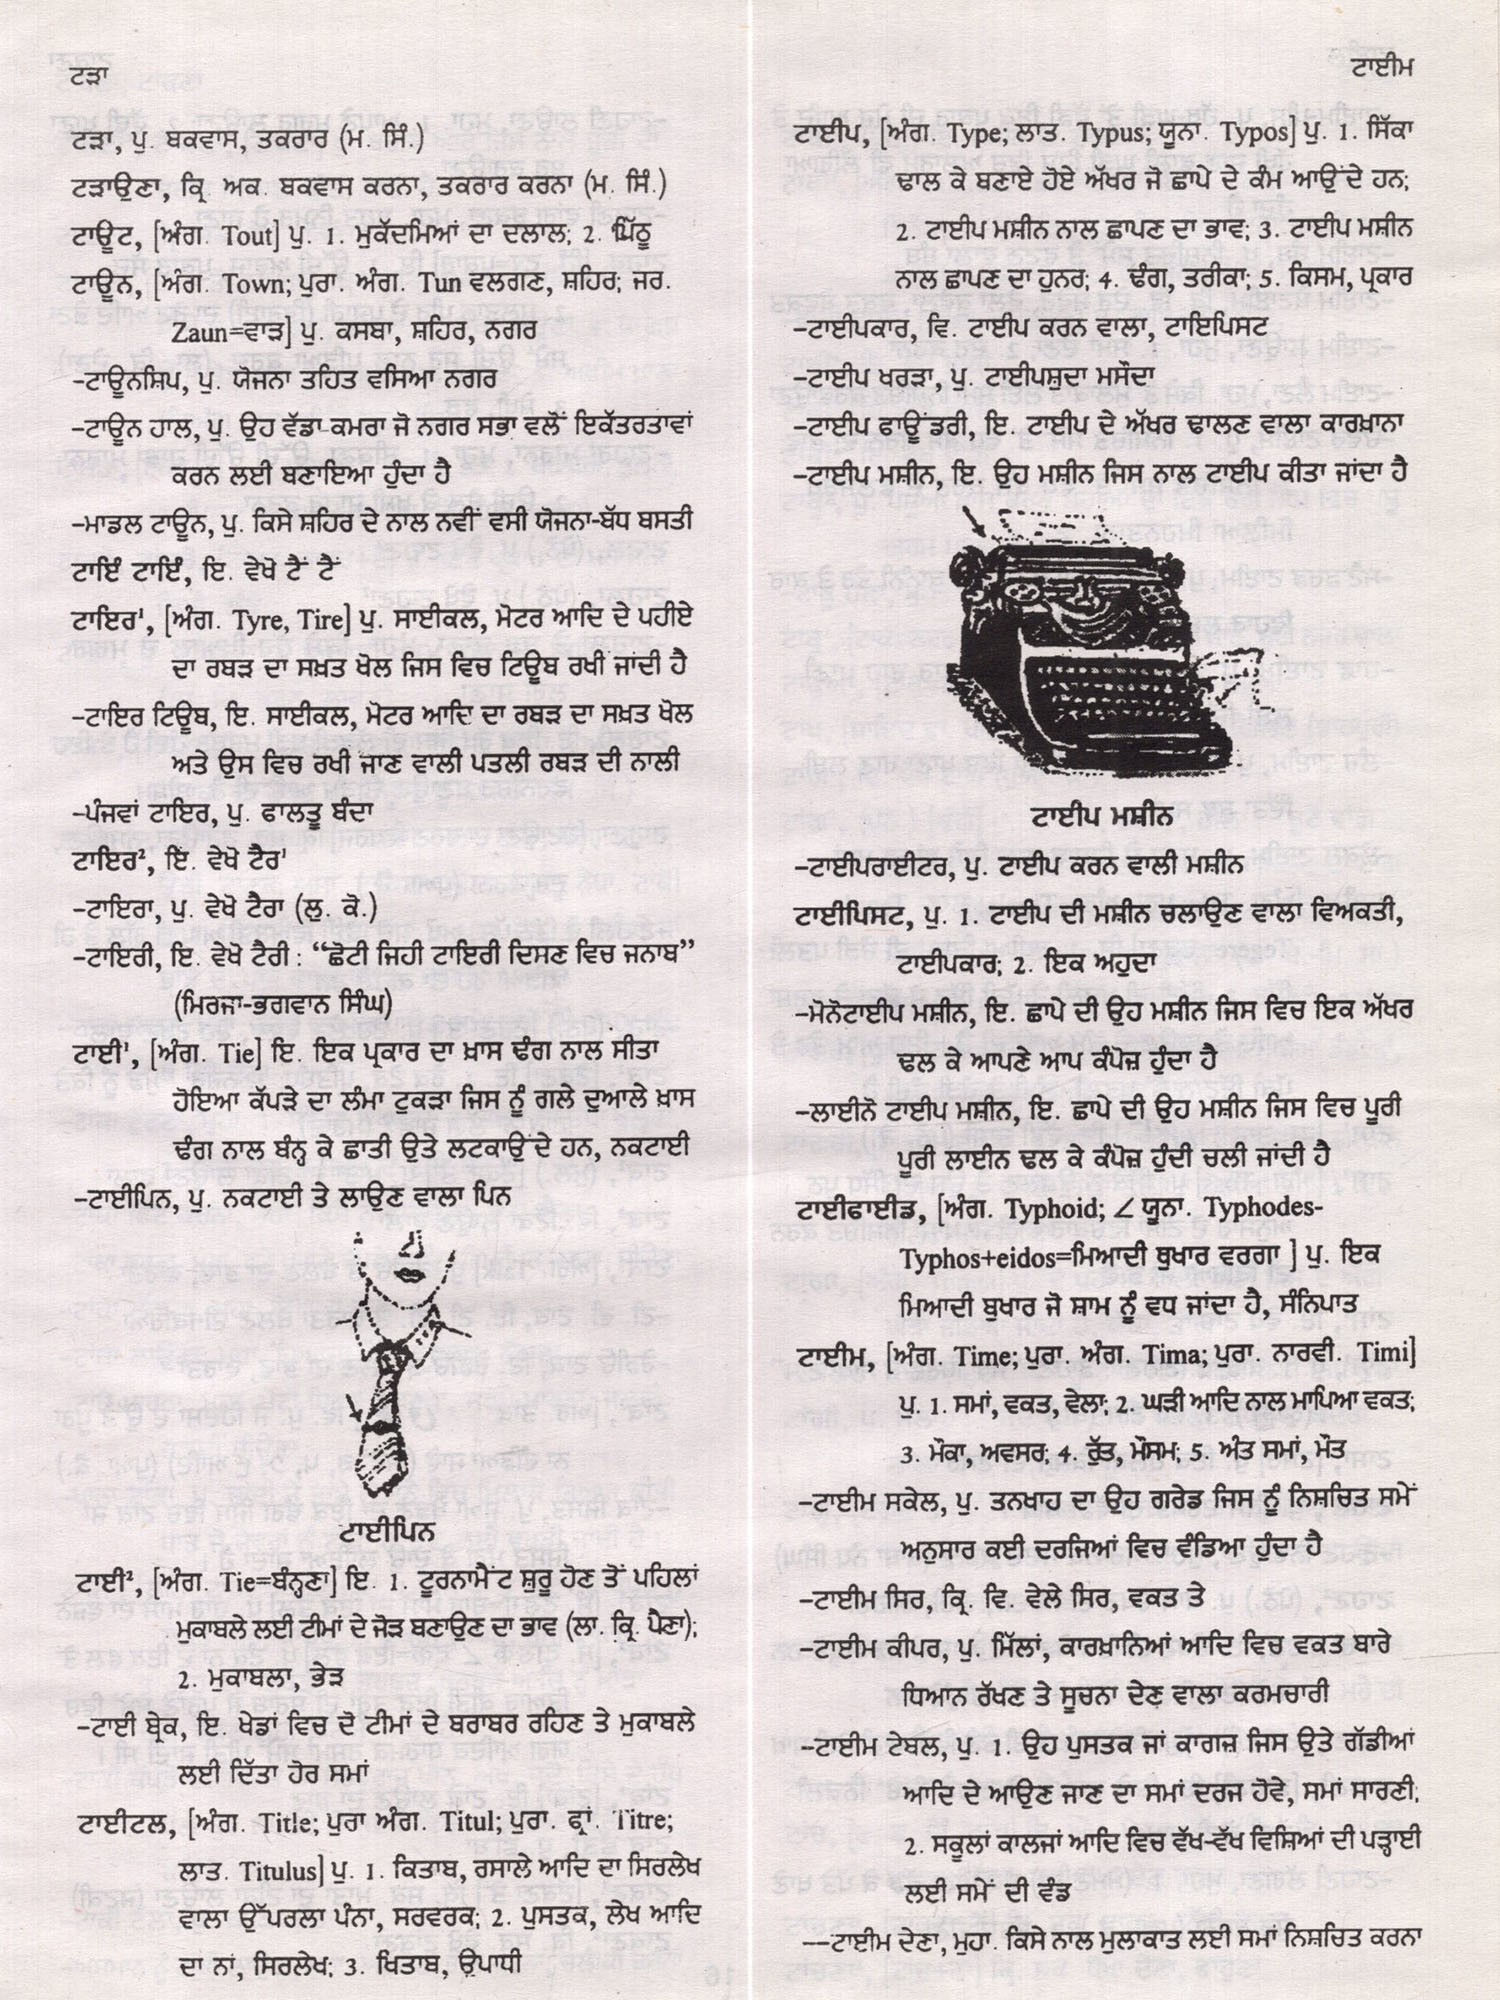 ਟੜਾ
ਟੜਾ, ਪੁ. ਬਕਵਾਸ, ਤਕਰਾਰ (ਮ. ਸਿੰ.)
ਟੜਾਉਣਾ, ਕ੍ਰਿ. ਅਕ. ਬਕਵਾਸ ਕਰਨਾ, ਤਕਰਾਰ ਕਰਨਾ (ਮ. ਸਿੰ.)
ਟਾਊਟ, [ਅੰਗ. Tout] ਪੁ. 1. ਮੁਕੱਦਮਿਆਂ ਦਾ ਦਲਾਲ; 2. ਪਿੱਠੂ
ਟਾਊਨ, [ਅੰਗ. Town; ਪੁਰਾ. ਅੰਗ. Tun ਵਲਗਣ, ਸ਼ਹਿਰ; ਜਰ.
Zaun=ਵਾੜ] ਪੁ. ਕਸਬਾ, ਸ਼ਹਿਰ, ਨਗਰ
–ਟਾਊਨਸ਼ਿਪ, ਪੁ. ਯੋਜਨਾ ਤਹਿਤ ਵਸਿਆ ਨਗਰ
–ਟਾਊਨ ਹਾਲ, ਪੁ. ਉਹ ਵੱਡਾ ਕਮਰਾ ਜੋ ਨਗਰ ਸਭਾ ਵਲੋਂ ਇਕੱਤਰਤਾਵਾਂ
ਕਰਨ ਲਈ ਬਣਾਇਆ ਹੁੰਦਾ ਹੈ
–ਮਾਡਲ ਟਾਊਨ, ਪੁ. ਕਿਸੇ ਸ਼ਹਿਰ ਦੇ ਨਾਲ ਨਵੀਂ ਵਸੀ ਯੋਜਨਾ-ਬੱਧ ਬਸਤੀ
ਟਾਇੰ ਟਾਇੰ, ਇ. ਵੇਖੋ ਟੈਂ ਟੈਂ
ਟਾਇਰ¹, [ਅੰਗ. Tyre, Tire] ਪੁ. ਸਾਈਕਲ, ਮੋਟਰ ਆਦਿ ਦੇ ਪਹੀਏ
ਦਾ ਰਬੜ ਦਾ ਸਖ਼ਤ ਖੋਲ ਜਿਸ ਵਿਚ ਟਿਊਬ ਰਖੀ ਜਾਂਦੀ ਹੈ
–ਟਾਇਰ ਟਿਊਬ, ਇ. ਸਾਈਕਲ, ਮੋਟਰ ਆਦਿ ਦਾ ਰਬੜ ਦਾ ਸਖ਼ਤ ਖੋਲ
ਅਤੇ ਉਸ ਵਿਚ ਰਖੀ ਜਾਣ ਵਾਲੀ ਪਤਲੀ ਰਬੜ ਦੀ ਨਾਲੀ
–ਪੰਜਵਾਂ ਟਾਇਰ, ਪੁ. ਫਾਲਤੂ ਬੰਦਾ
ਟਾਇਰ², ਇ. ਵੇਖੋ ਟੈਰ¹
–ਟਾਇਰਾ, ਪੁ. ਵੇਖੋ ਟੈਰਾ (ਲੁ. ਕੋ.)
–ਟਾਇਰੀ, ਇ. ਵੇਖੋ ਟੈਰੀ : “ਛੋਟੀ ਜਿਹੀ ਟਾਇਰੀ ਦਿਸਣ ਵਿਚ ਜਨਾਬ”
(ਮਿਰਜਾ-ਭਗਵਾਨ ਸਿੰਘ)
ਟਾਈ¹, [ਅੰਗ. Tie] ਇ. ਇਕ ਪ੍ਰਕਾਰ ਦਾ ਖ਼ਾਸ ਢੰਗ ਨਾਲ ਸੀਤਾ
ਹੋਇਆ ਕੱਪੜੇ ਦਾ ਲੰਮਾ ਟੁਕੜਾ ਜਿਸ ਨੂੰ ਗਲੇ ਦੁਆਲੇ ਖ਼ਾਸ
ਢੰਗ ਨਾਲ ਬੰਨ੍ਹ ਕੇ ਛਾਤੀ ਉਤੇ ਲਟਕਾਉਂਦੇ ਹਨ, ਨਕਟਾਈ
–ਟਾਈਪਿਨ, ਪੁ. ਨਕਟਾਈ ਤੇ ਲਾਉਣ ਵਾਲਾ ਪਿਨ
ਟਾਈਪਿਨ
ਟਾਈ², [ਅੰਗ. Tie=ਬੰਨ੍ਹਣਾ] ਇ. 1. ਟੂਰਨਾਮੈਂਟ ਸ਼ੁਰੂ ਹੋਣ ਤੋਂ ਪਹਿਲਾਂ
ਮੁਕਾਬਲੇ ਲਈ ਟੀਮਾਂ ਦੇ ਜੋੜ ਬਣਾਉਣ ਦਾ ਭਾਵ (ਲਾ. ਕ੍ਰਿ. ਪੈਣਾ);
2. ਮੁਕਾਬਲਾ, ਭੇੜ
–ਟਾਈ ਬ੍ਰੇਕ, ਇ. ਖੇਡਾਂ ਵਿਚ ਦੋ ਟੀਮਾਂ ਦੇ ਬਰਾਬਰ ਰਹਿਣ ਤੇ ਮੁਕਾਬਲੇ
ਲਈ ਦਿੱਤਾ ਹੋਰ ਸਮਾਂ
ਟਾਈਟਲ, [ਅੰਗ. Title; ਪੁਰਾ ਅੰਗ. Titul; ਪੁਰਾ. ਫ੍ਰਾਂ. Titre;
ਲਾਤ. Titulus] ਪੁ. 1. ਕਿਤਾਬ, ਰਸਾਲੇ ਆਦਿ ਦਾ ਸਿਰਲੇਖ
ਵਾਲਾ ਉੱਪਰਲਾ ਪੰਨਾ, ਸਰਵਰਕ; 2. ਪੁਸਤਕ, ਲੇਖ ਆਦਿ
ਦਾ ਨਾਂ, ਸਿਰਲੇਖ; 3. ਖਿਤਾਬ, ਉਪਾਧੀ
ਟਾਈਮ
ਟਾਈਪ, [ਅੰਗ. Type; ਲਾਤ. Typus; ਯੂਨਾ. Typos] ਪੁ. 1. ਸਿੱਕਾ
ਢਾਲ ਕੇ ਬਣਾਏ ਹੋਏ ਅੱਖਰ ਜੋ ਛਾਪੇ ਦੇ ਕੰਮ ਆਉਂਦੇ ਹਨ;
2. ਟਾਈਪ ਮਸ਼ੀਨ ਨਾਲ ਛਾਪਣ ਦਾ ਭਾਵ; 3. ਟਾਈਪ ਮਸ਼ੀਨ
ਨਾਲ ਛਾਪਣ ਦਾ ਹੁਨਰ; 4. ਢੰਗ, ਤਰੀਕਾ; 5. ਕਿਸਮ, ਪ੍ਰਕਾਰ
–ਟਾਈਪਕਾਰ, ਵਿ. ਟਾਈਪ ਕਰਨ ਵਾਲਾ, ਟਾਇਪਿਸਟ
–ਟਾਈਪ ਖਰੜਾ, ਪੁ. ਟਾਈਪਸ਼ੁਦਾ ਮਸੌਦਾ
–ਟਾਈਪ ਫਾਊਂਡਰੀ, ਇ. ਟਾਈਪ ਦੇ ਅੱਖਰ ਢਾਲਣ ਵਾਲਾ ਕਾਰਖ਼ਾਨਾ
–ਟਾਈਪ ਮਸ਼ੀਨ, ਇ. ਉਹ ਮਸ਼ੀਨ ਜਿਸ ਨਾਲ ਟਾਈਪ ਕੀਤਾ ਜਾਂਦਾ ਹੈ
ਟਾਈਪ ਮਸ਼ੀਨ
–ਟਾਈਪਰਾਈਟਰ, ਪੁ. ਟਾਈਪ ਕਰਨ ਵਾਲੀ ਮਸ਼ੀਨ
ਟਾਈਪਿਸਟ, ਪੁ. 1. ਟਾਈਪ ਦੀ ਮਸ਼ੀਨ ਚਲਾਉਣ ਵਾਲਾ ਵਿਅਕਤੀ,
ਟਾਈਪਕਾਰ; 2. ਇਕ ਅਹੁਦਾ
–ਮੋਨੋਟਾਈਪ ਮਸ਼ੀਨ, ਇ. ਛਾਪੇ ਦੀ ਉਹ ਮਸ਼ੀਨ ਜਿਸ ਵਿਚ ਇਕ ਅੱਖਰ
ਢਲ ਕੇ ਆਪਣੇ ਆਪ ਕੰਪੋਜ਼ ਹੁੰਦਾ ਹੈ
–ਲਾਈਨੋ ਟਾਈਪ ਮਸ਼ੀਨ, ਇ. ਛਾਪੇ ਦੀ ਉਹ ਮਸ਼ੀਨ ਜਿਸ ਵਿਚ ਪੂਰੀ
ਪੂਰੀ ਲਾਈਨ ਢਲ ਕੇ ਕੰਪੋਜ਼ ਹੁੰਦੀ ਚਲੀ ਜਾਂਦੀ ਹੈ
ਟਾਈਫਾਈਡ, [ਅੰਗ. Typhoid; ∠ ਯੂਨਾ. Typhodes-
Typhos+eidos=ਮਿਆਦੀ ਬੁਖਾਰ ਵਰਗਾ ] ਪੁ. ਇਕ
ਮਿਆਦੀ ਬੁਖਾਰ ਜੋ ਸ਼ਾਮ ਨੂੰ ਵਧ ਜਾਂਦਾ ਹੈ, ਸੰਨਿਪਾਤ
ਟਾਈਮ, [ਅੰਗ. Time; ਪੁਰਾ. ਅੰਗ. Tima; ਪੁਰਾ. ਨਾਰਵੀ. Timi]
ਪੁ. 1. ਸਮਾਂ, ਵਕਤ, ਵੇਲਾ; 2. ਘੜੀ ਆਦਿ ਨਾਲ ਮਾਪਿਆ ਵਕਤ;
3. ਮੌਕਾ, ਅਵਸਰ; 4. ਰੁੱਤ, ਮੌਸਮ; 5. ਅੰਤ ਸਮਾਂ, ਮੌਤ
–ਟਾਈਮ ਸਕੇਲ, ਪੁ. ਤਨਖਾਹ ਦਾ ਉਹ ਗਰੇਡ ਜਿਸ ਨੂੰ ਨਿਸ਼ਚਿਤ ਸਮੇਂ
ਅਨੁਸਾਰ ਕਈ ਦਰਜਿਆਂ ਵਿਚ ਵੰਡਿਆ ਹੁੰਦਾ ਹੈ
–ਟਾਈਮ ਸਿਰ, ਕ੍ਰਿ. ਵਿ. ਵੇਲੇ ਸਿਰ, ਵਕਤ ਤੇ
–ਟਾਈਮ ਕੀਪਰ, ਪੁ. ਮਿੱਲਾਂ, ਕਾਰਖ਼ਾਨਿਆਂ ਆਦਿ ਵਿਚ ਵਕਤ ਬਾਰੇ
ਧਿਆਨ ਰੱਖਣ ਤੇ ਸੂਚਨਾ ਦੇਣ ਵਾਲਾ ਕਰਮਚਾਰੀ
–ਟਾਈਮ ਟੇਬਲ, ਪੁ. 1. ਉਹ ਪੁਸਤਕ ਜਾਂ ਕਾਗਜ਼ ਜਿਸ ਉਤੇ ਗੱਡੀਆਂ
ਆਦਿ ਦੇ ਆਉਣ ਜਾਣ ਦਾ ਸਮਾਂ ਦਰਜ ਹੋਵੇ, ਸਮਾਂ ਸਾਰਣੀ;
2. ਸਕੂਲਾਂ ਕਾਲਜਾਂ ਆਦਿ ਵਿਚ ਵੱਖ-ਵੱਖ ਵਿਸ਼ਿਆਂ ਦੀ ਪੜ੍ਹਾਈ
ਲਈ ਸਮੇਂ ਦੀ ਵੰਡ
––ਟਾਈਮ ਦੇਣਾ, ਮੁਹਾ. ਕਿਸੇ ਨਾਲ ਮੁਲਾਕਾਤ ਲਈ ਸਮਾਂ ਨਿਸ਼ਚਿਤ ਕਰਨਾ